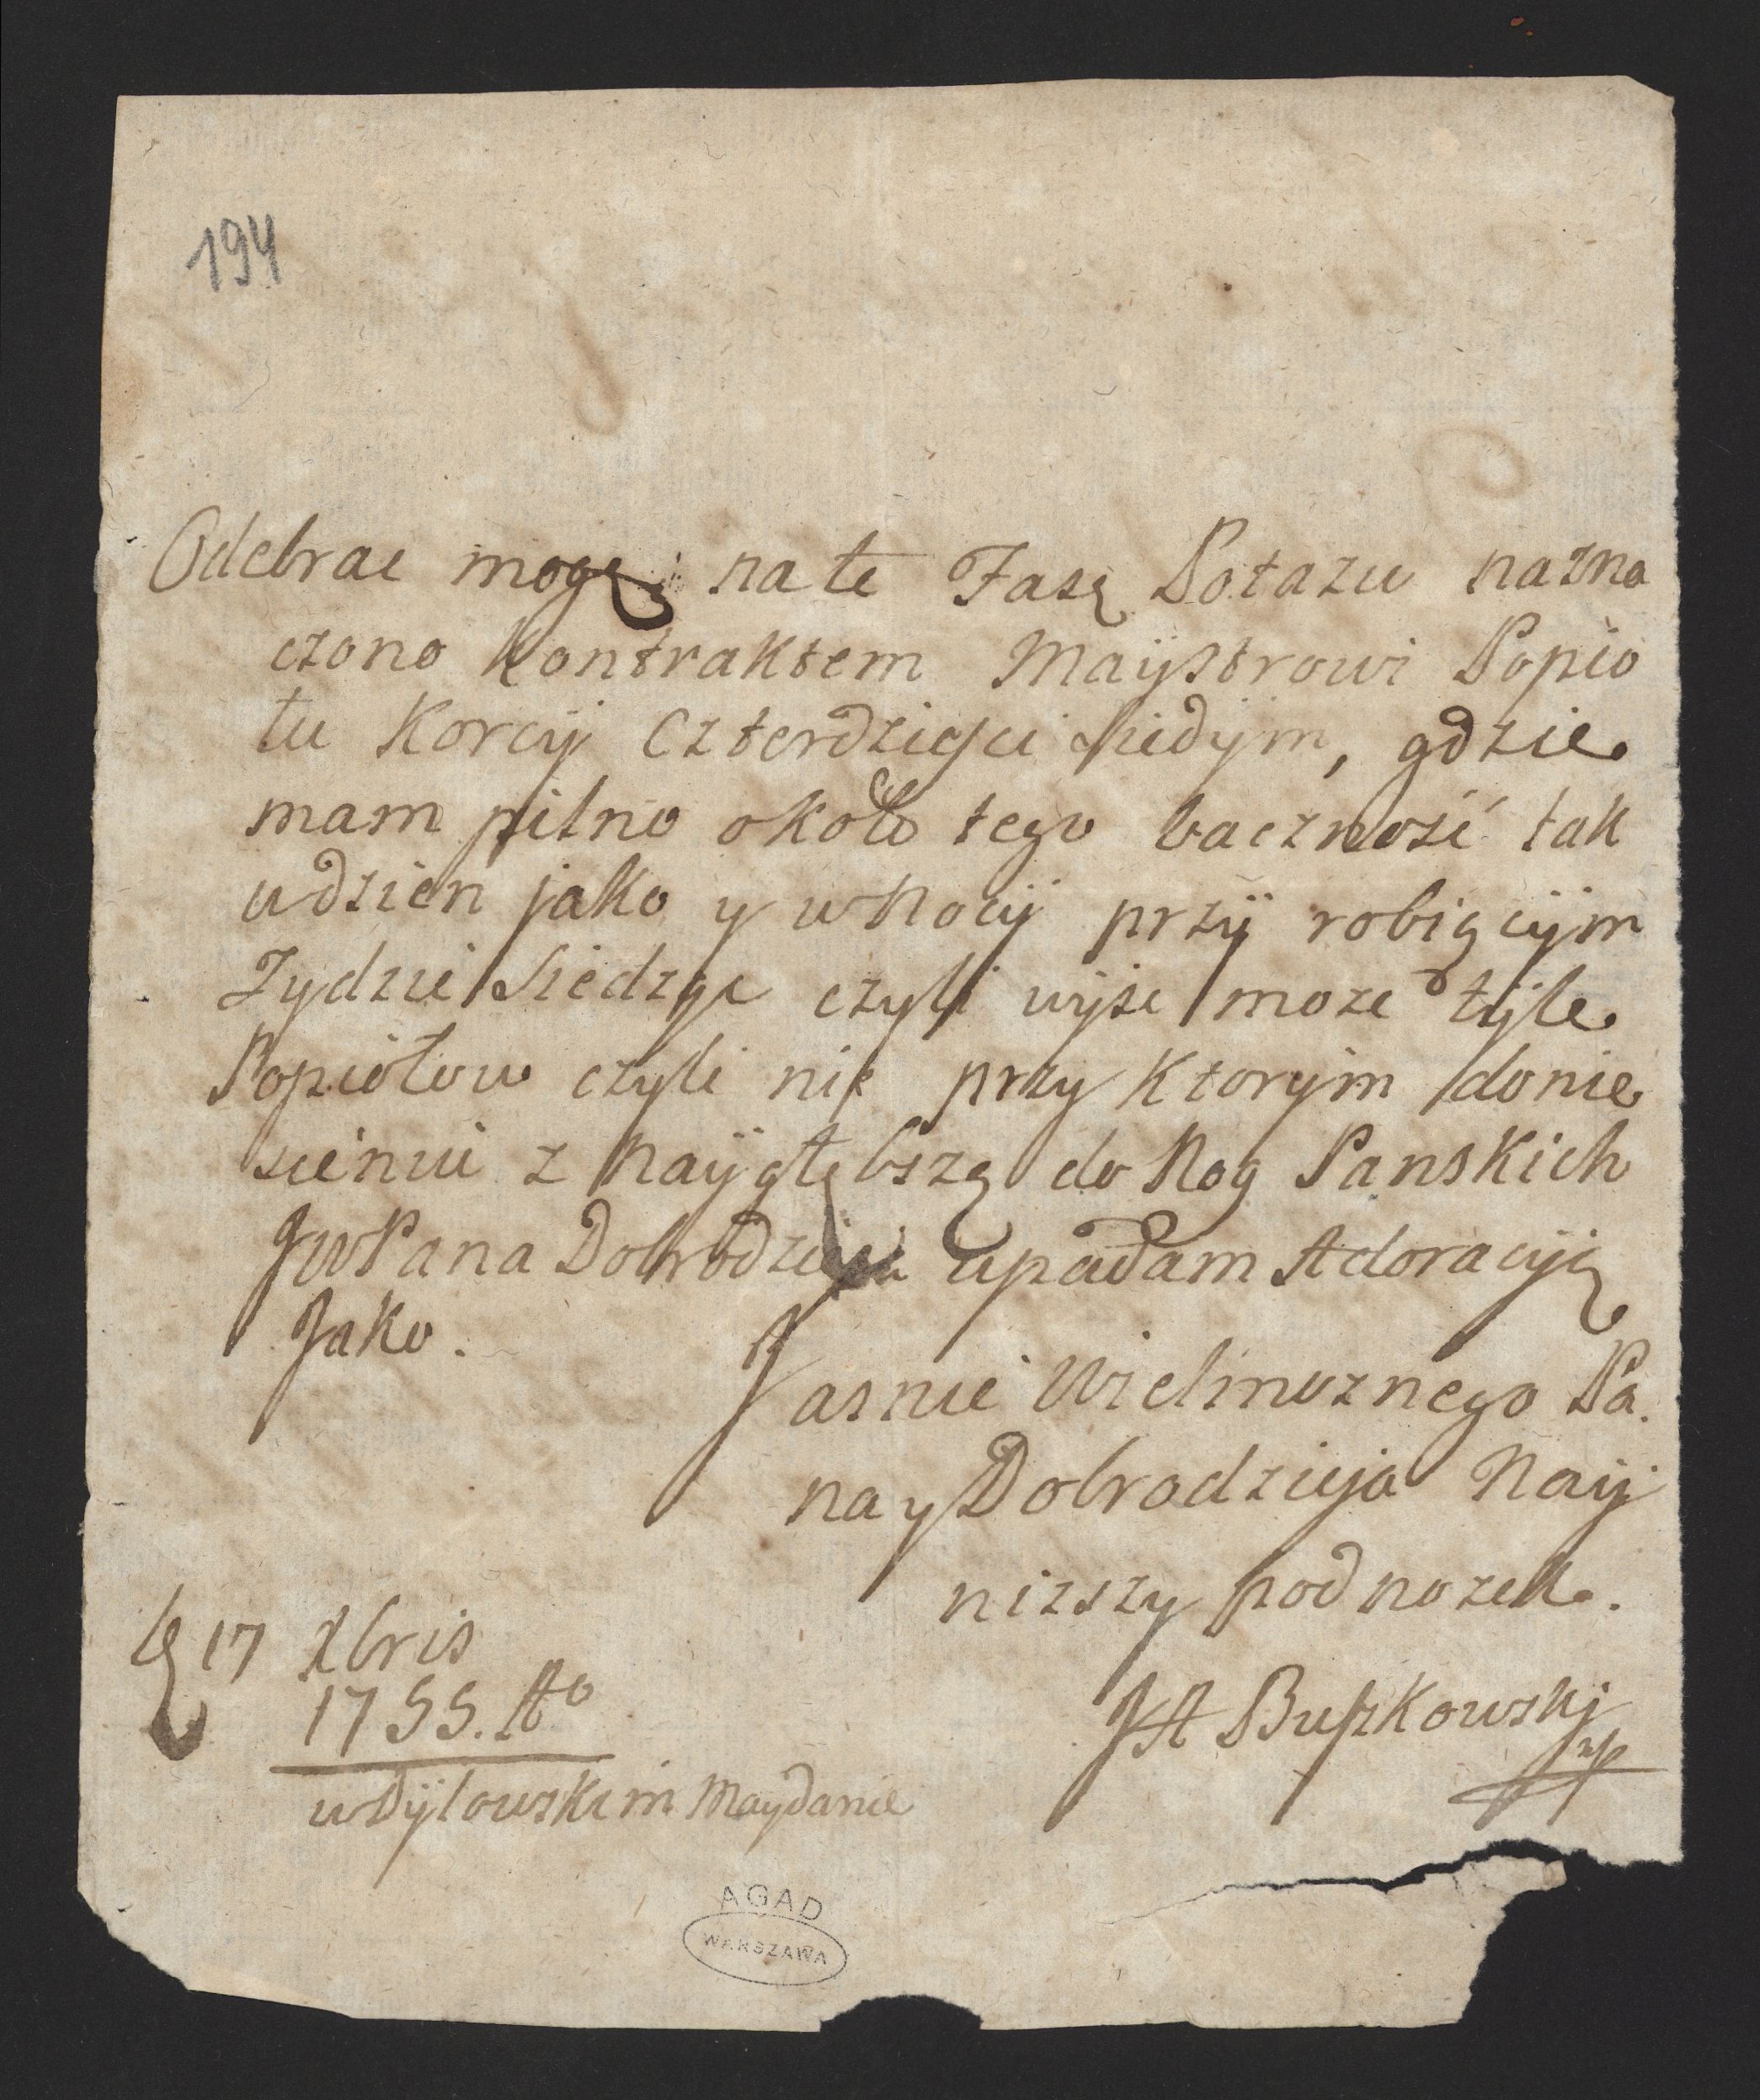 194
Odebrac mogę na te Fasę Potazu nazna
czono Kontraktem Mayÿstrowi Popio
łu Korcÿ Czterdzieſci ſiedÿm, gdzie
mam pilno około tego bacznosć tak
wdzien jako y wNocÿ przÿ robiącÿm
Zydzie Siedząc czyli wÿsc moze tÿle
Popiołow czyli nie przy Ktorÿm donie
sieniu z Nayÿgłębszą do Nog Panskich
JWPana Dobrodzieja upadam Adoracyją
Jako.
Jasnie Wielmoznego Pa.
na y Dobrodzieja Nayÿ
nizszy podnozek.
D 17 Xbris
1755. Ao
wDÿlowskim Maydanie
JA Buſzkowskj
mp
AGAD
WARSZAWA